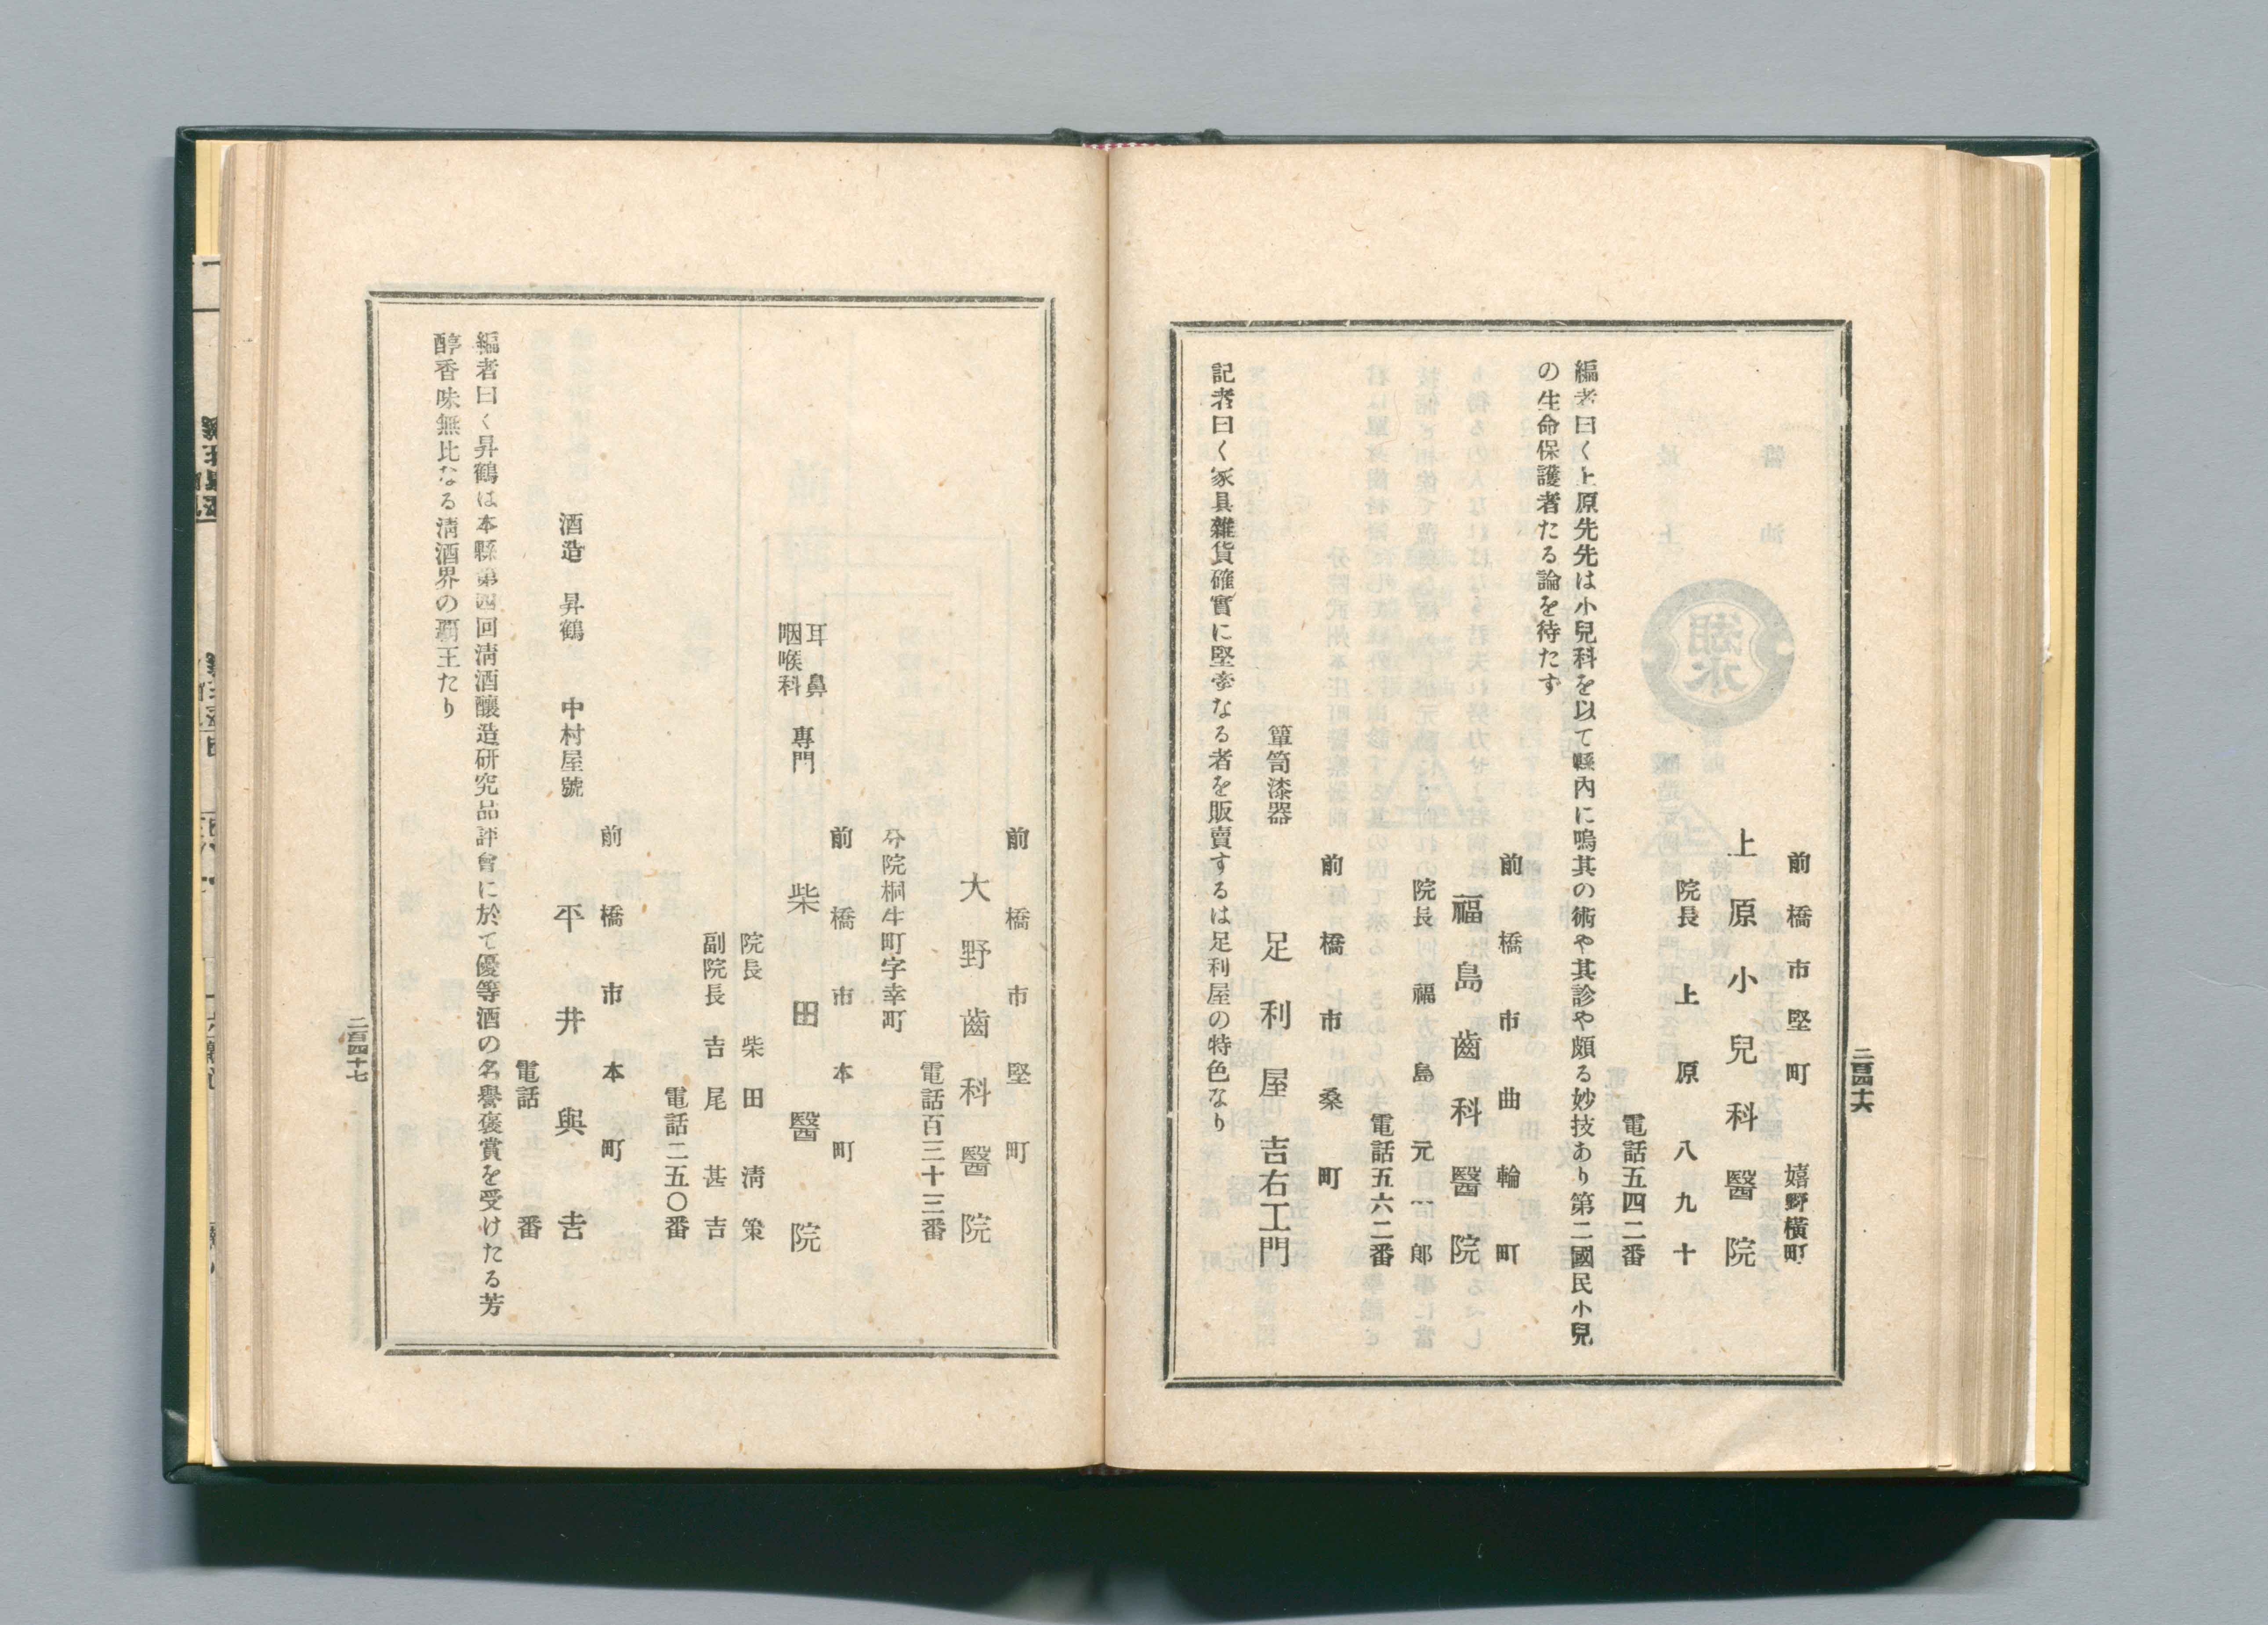 二百四十六
前橋市堅町　嬉野横町
上原小兒科醫院
院長　上原八九十
電話五四二番
編者曰く上原先先は小兒科を以て縣内に鳴其の術や其診や頗る妙技あり第二國民小兒
の生命保護者たる論を待たず
前橋市曲輪町
福島齒科醫院
院長　福島元一郎
電話五六二番
前橋市桑町
簞笥漆器　足利屋　吉右工門
記者曰く家具雜貨確實に堅牢なる者を販賣するは足利屋の特色なり
前橋市堅町
大野齒科醫院
電話百三十三番
分院桐生町字幸町
前橋市本町
耳鼻
咽喉科　專門　柴田醫院
院長　柴田淸策
副院長　吉尾甚吉
電話二五〇番
前橋市本町
酒造　昇鶴　中村屋號　平井與吉
電話　番
編者曰く昇鶴は本縣第四回淸酒釀造研究品評會に於て優等酒の名譽褒賞を受けたる芳
醇香味無比なる淸酒界の覇王たり
二百四十七